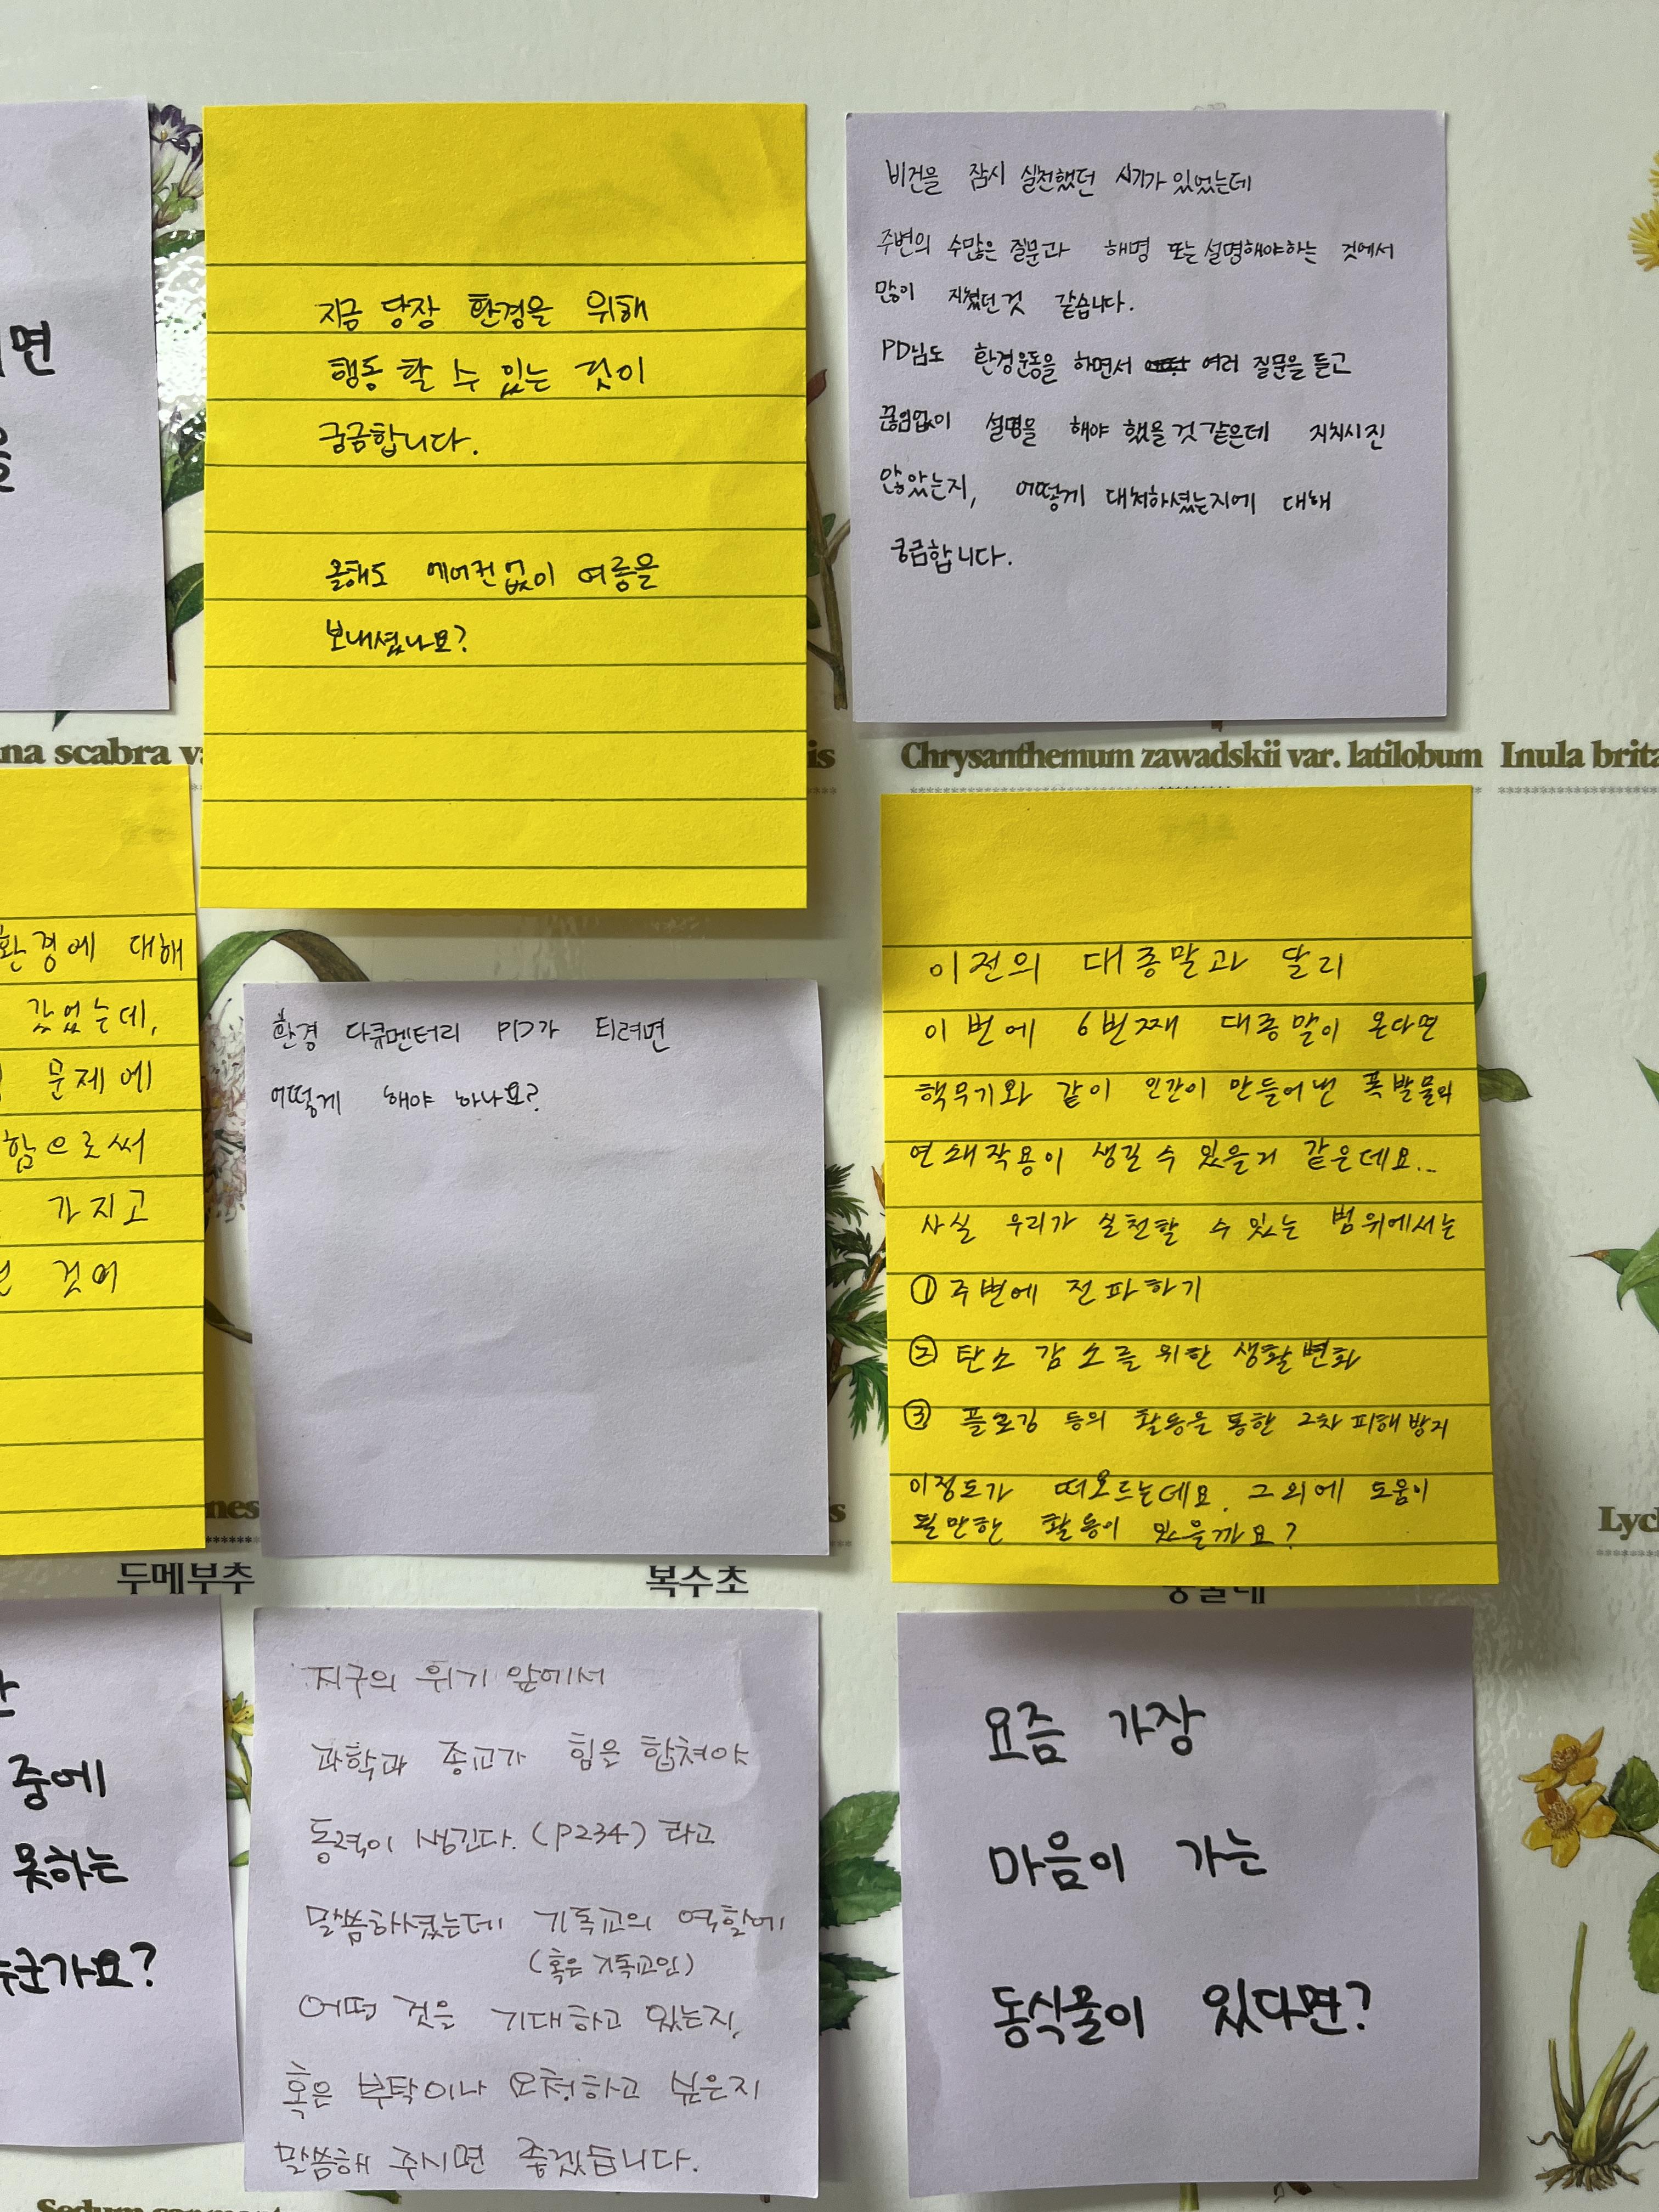 면
을
지금 당장 환경을 위해
행동 할 수 있는 것이
궁금합니다.
올해도 에어컨 없이 여름을
보내셨나요?
비건을 잠시 실천했던 시기가 있었는데
주변의 수많은 질문과 해명 또는 설명해야하는 것에서
많이 지쳤던것 같습니다.
PD님도 환경운동을 하면서 여러 질문을 듣고
끊임없이 설명을 해야 했을것 같은데 지치시진
않았는지, 어떻게 대처하셨는지에 대해
궁금합니다.
na scabra va
is
Chrysanthemum zawadskii var. latilobum
Inula brita
환경에 대해
갔었는데,
문제에
함으로써
가지고
것이
환경 다큐멘터리 PD가 되려면
어떻게 해야 하나요?
이전의 대종말과 달리
이번에 6번째 대종말이 온다면
핵무기와 같이 인간이 만들어낸 폭발물의
연쇄작용이 생길 수 있을거 같은데요..
사실 우리가 실천할 수 있는 범위에서는
① 주변에 전파하기
② 탄소 감소를 위한 생활변화
③ 플로깅 등의 활동을 통한 2차 피해 방지
이정도가 떠오르는데요. 그 외에 도움이
될만한 활동이 있을까요?
nes
s
Lych
두메부추
복수초
중에
못하는
누군가요?
지구의 위기 앞에서
과학과 종교가 힘을 합쳐야
동력이 생긴다. (P234) 라고
말씀하셨는데 기독교의 역할에
(혹은 기독교인)
어떤 것을 기대하고 있는지,
혹은 부탁이나 요청하고 싶은지
말씀해 주시면 좋겠습니다.
요즘 가장
마음이 가는
동식물이 있다면?